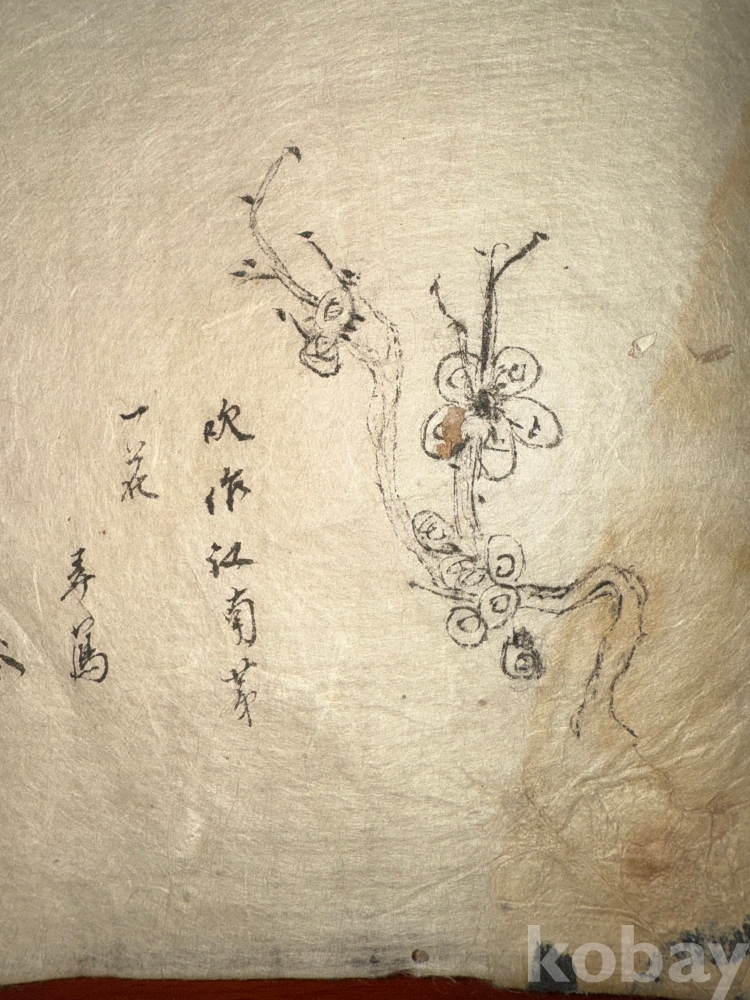 吹作江南第
一花
kobay